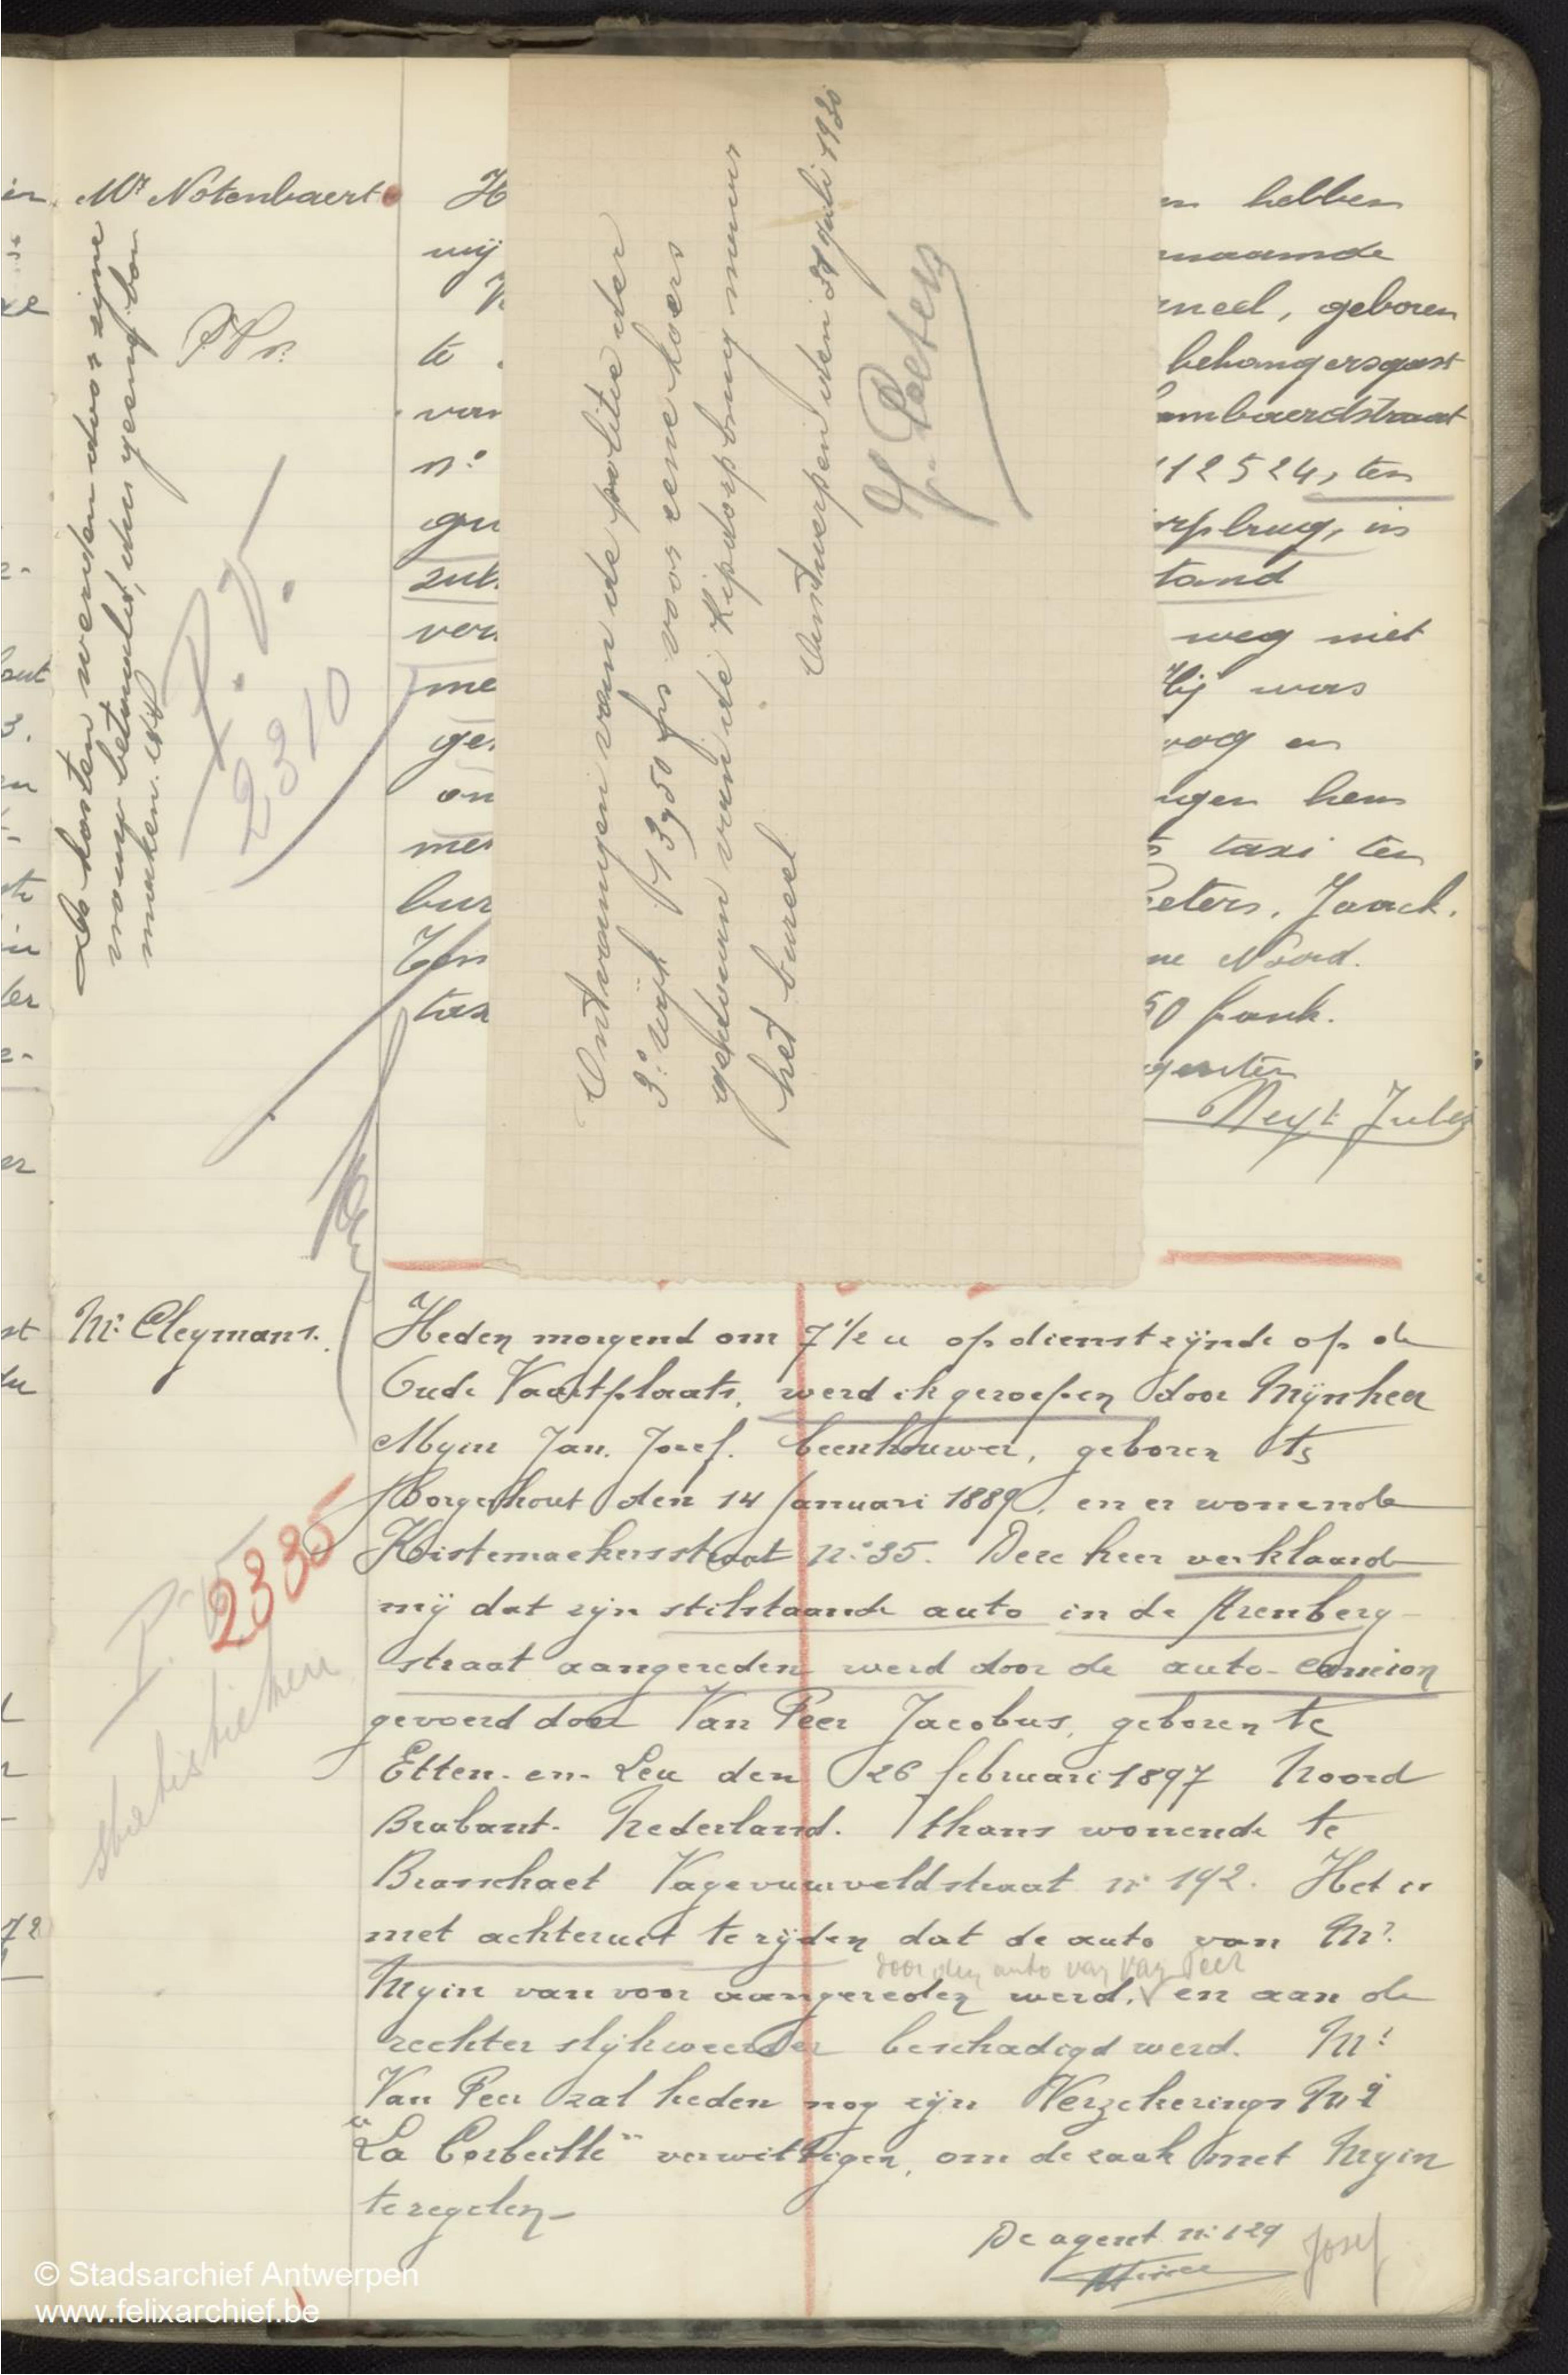 Mr Notenbaert
De kosten werden door zijne
vrouw betaald, dus geen bon
maken.
P.V.
2310
H
wij
te
van
n°
gu
zuk
ver
me
ge
on
met
bur
Ten
tax
en hebben
rnaamde
rneel, geboren
behangersgast
ombaerdstraat
112524, ten
rpbrug, in
tand
weg niet
Hij was
oog en
ugen hem
taxi ten
Peeters, Jaack.
ne Noord.
50 frank.
genten
Neyt Jules
Ontvangen van de politie der
3e wijk 13,50 frs voor eene koers
gedaan van de Kipdorpbrug naar
het bureel
Antwerpen den 29 juli 1930
J. Peeters
Mr Cleymans.
P.V.
2335
statistieken
Heden morgend om 7 1/2 u op dienst zijnde op de
Oude Vaartplaats, werd ik geroepen door Mijnheer
Myin Jan. Jozef. beenhouwer, geboren te
Borgerhout den 14 Januari 1889, en er wonende
Kistemaekersstraat n° 35. Deze heer verklaarde
mij dat zijn stilstaande auto in de Arenberg-
straat aangereden werd door de auto-camion
gevoerd door Van Peer Jacobus, geboren te
Etten-en-Leu den 26 februari 1897 Noord
Brabant. Nederland. thans wonende te
Brasschaet Vagevuurveldstraat n° 192. Het is
met achteruit te rijden dat de auto van Mr.
door den auto van Van Peer
Myin van voor aangereden werd, V en aan de
rechter slijkweerder beschadigd werd. Mr
Van Peer zal heden nog zijn Verzekerings Mij
"La Corbeille" verwittigen, om de zaak met Myin
te regelen_
De agent n° 129
Josef
© Stadsarchief Antwerpen
www.felixarchief.be